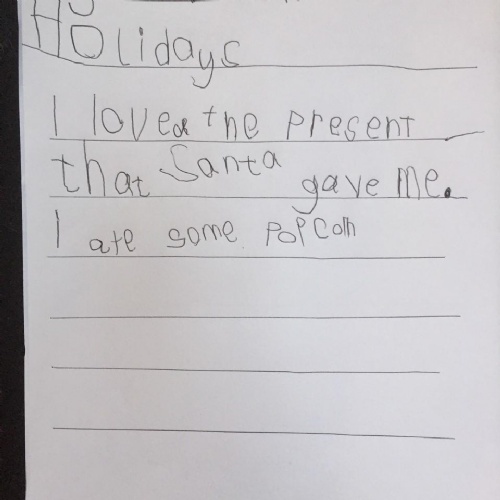 Holidays
I loved the present
that Santa gave me.
I ate some popcorn